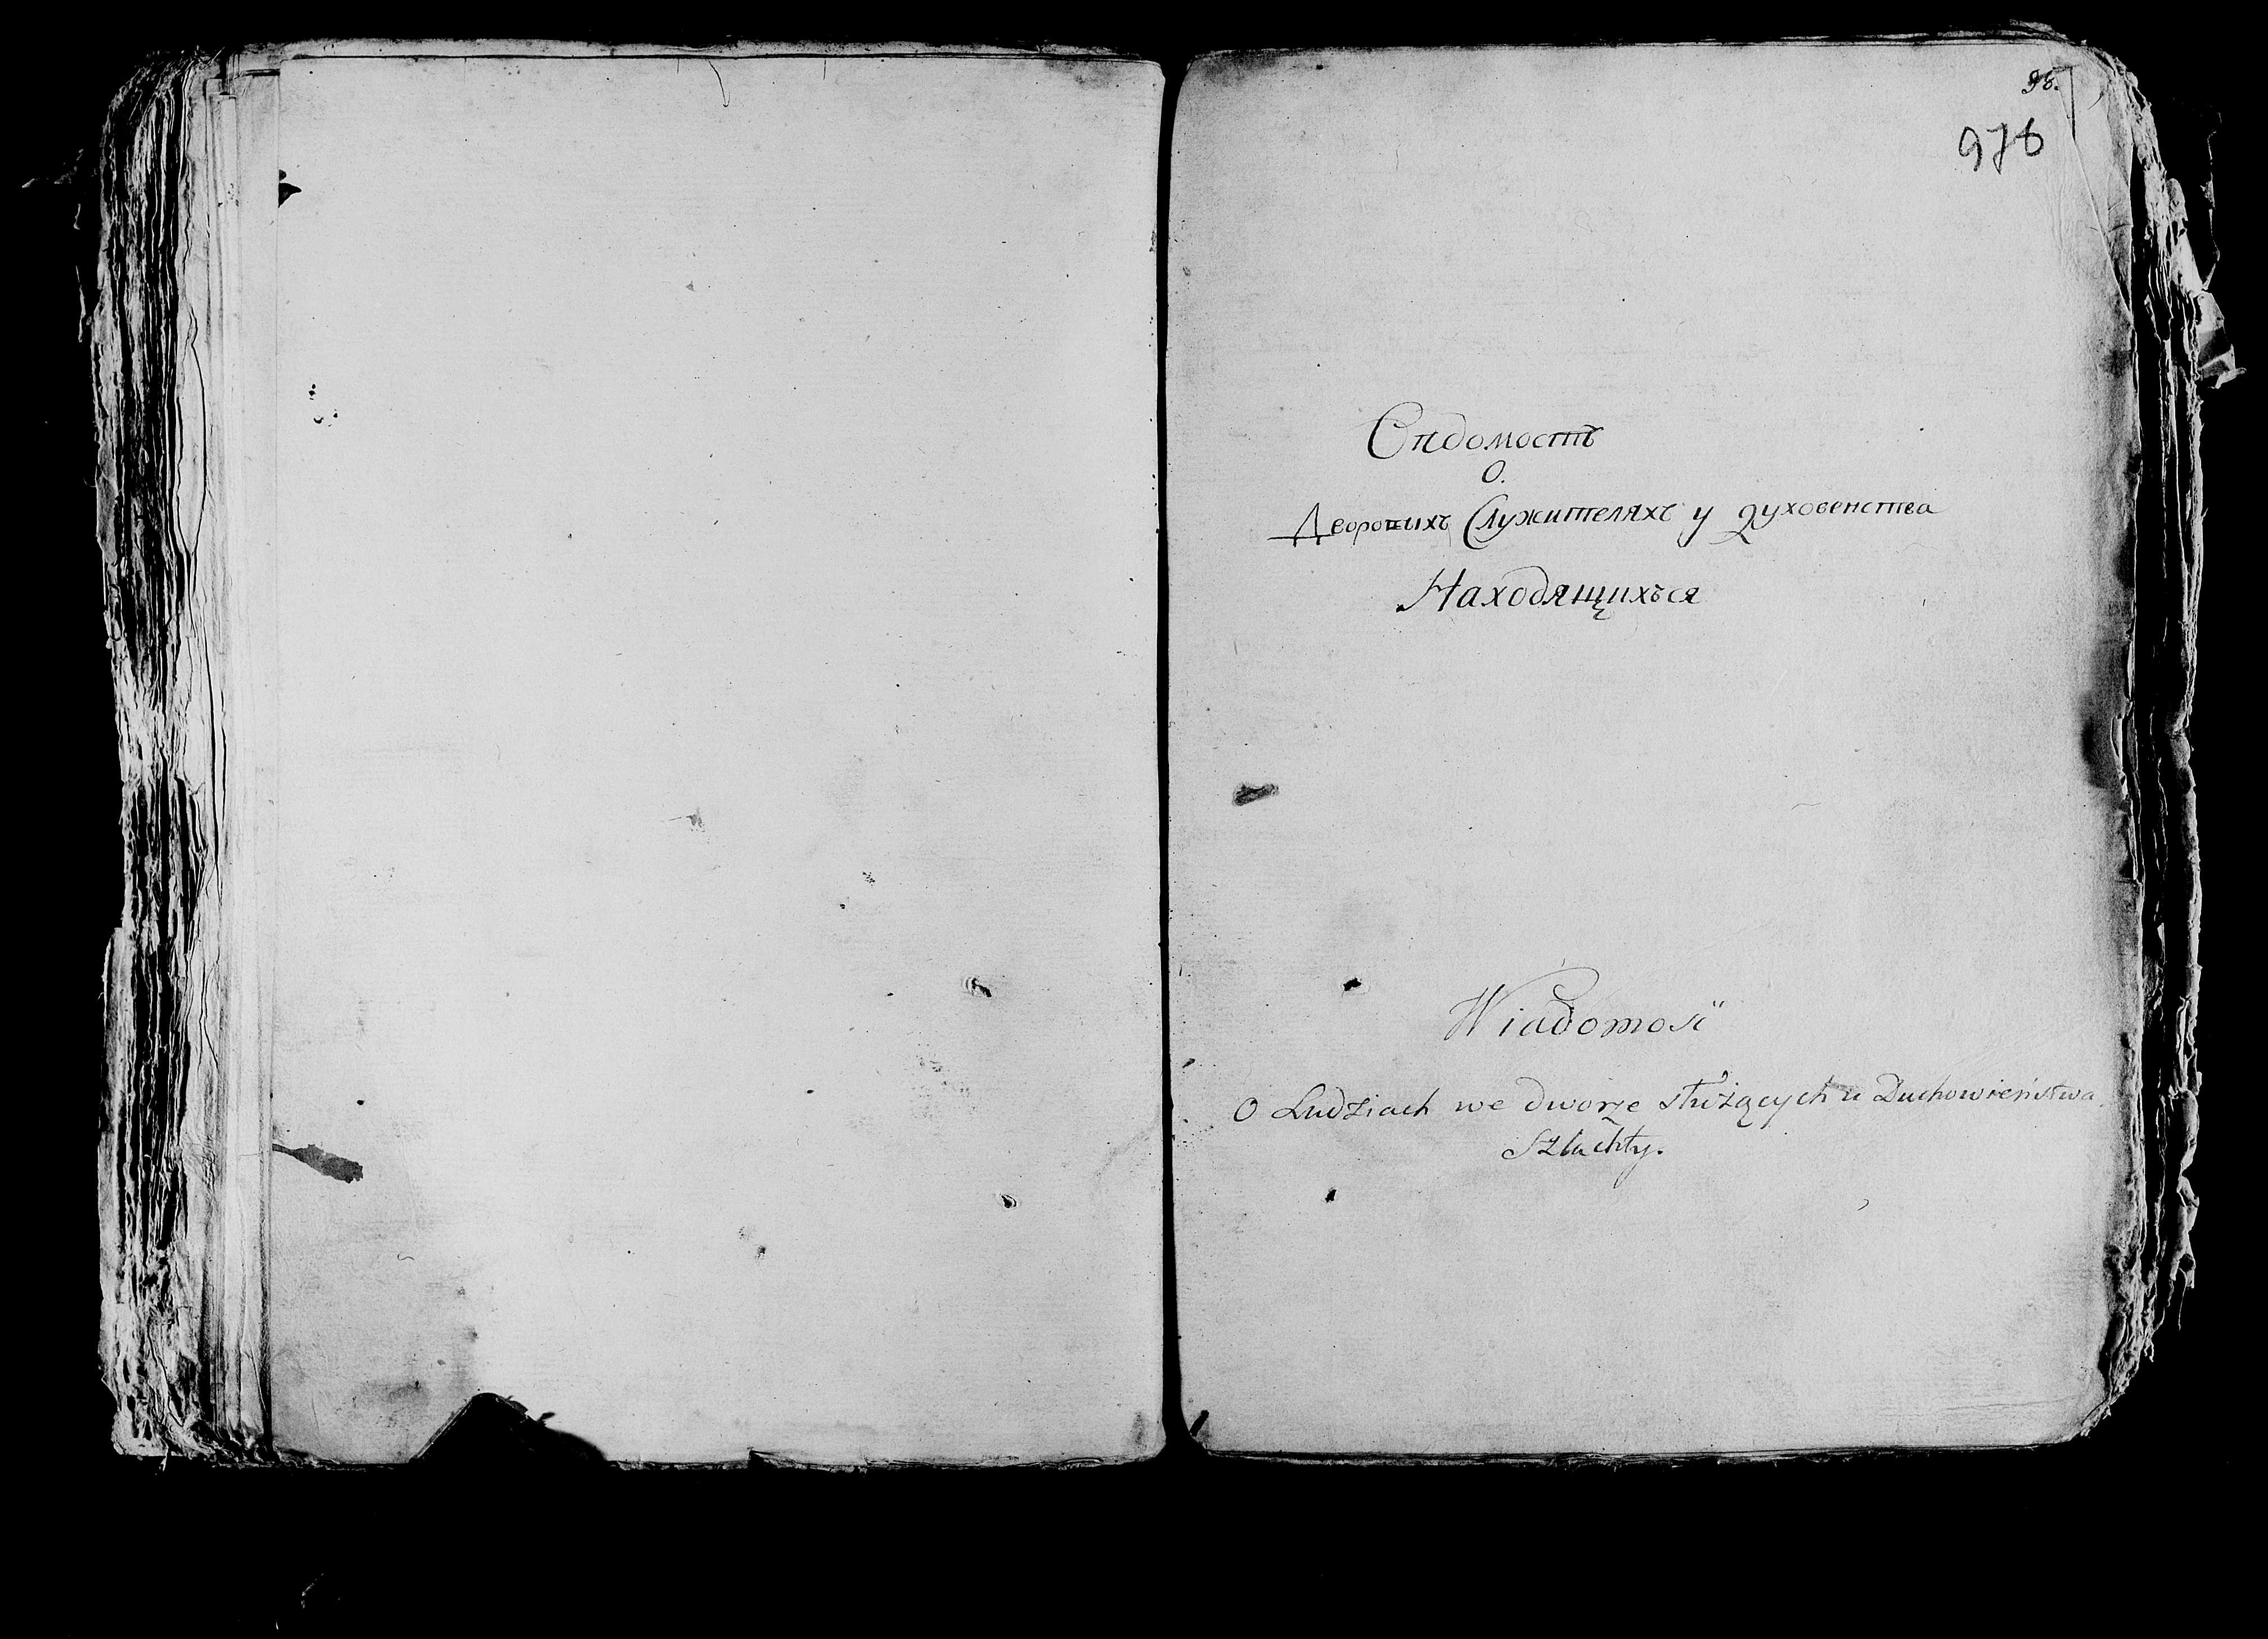 98.
978
Вѣдомость
О.
Дворовыхъ Служителяхъ у духовенства
Находящихъся
Wiadomość
O Ludziach we dworze służących u Duchowieństwa.
Szlachty.